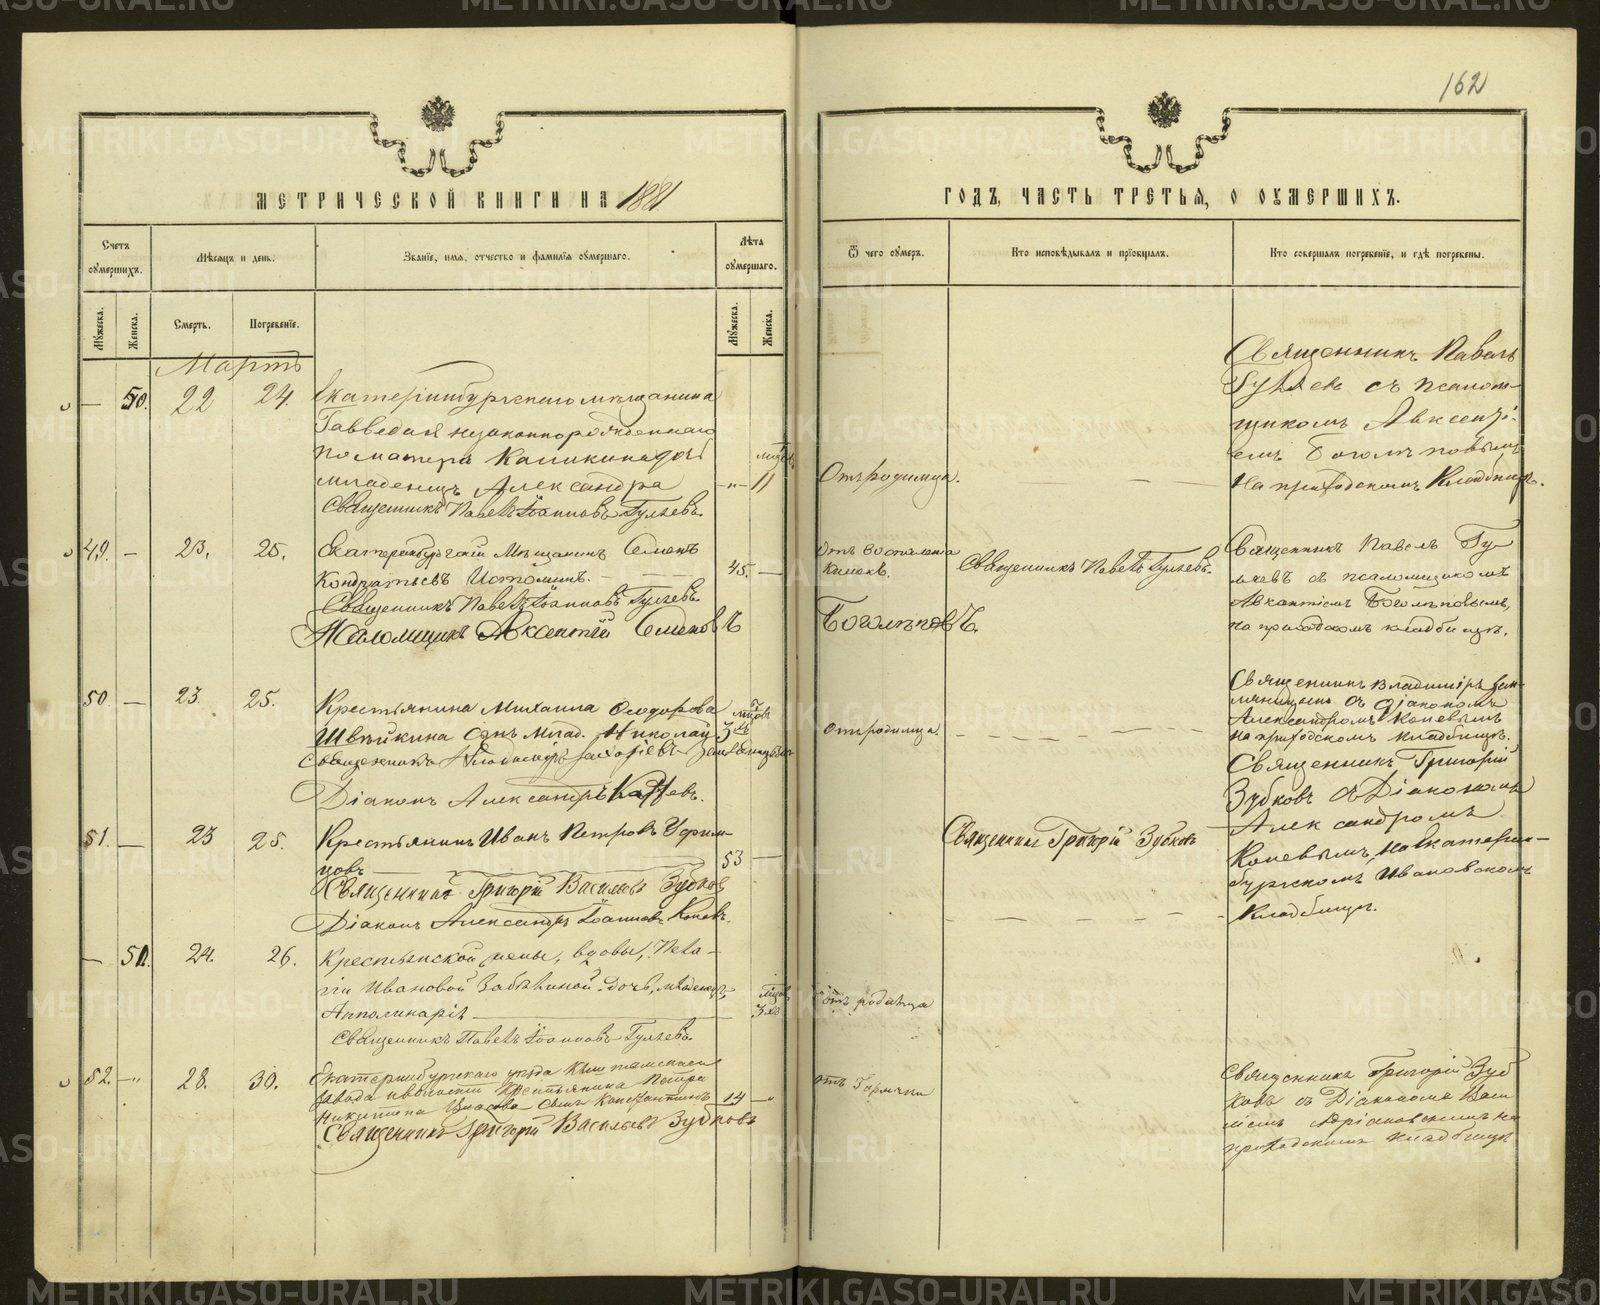 162
МЕТРИЧЕСКОЙ КНИГИ НА 1881
ГОДЪ, ЧАСТЬ ТРЕТЬЯ, О ОУМЕРШИХЪ.
Счетъ оумершихъ.
Мѣсяцъ и день.
Званіе, имя, отчество и фамилія оумершаго.
Лѣта оумершаго.
Ѿ чего оумеръ.
Кто исповѣдывалъ и пріобщалъ.
Кто совершалъ погребеніе, и гдѣ погребены.
Мужеска.
Женска.
Смерть.
Погребеніе.
Мужеска.
Женска.
Мартъ
— 50. 22 24.
Екатеринбургскаго мѣщанина
незаконнорожденнаго
по матери Каликина дочь
младенецъ Александра
Священникъ Павелъ Іоанновъ Гуляевъ.
11
Отъ родимца.
Священникъ Павелъ
Гуляевъ съ псалом-
щикомъ Авксенті-
емъ Боголѣповымъ
На приходскомъ Кладбищѣ.
49. — 23. 25.
Екатеринбургскій Мѣщанинъ Семенъ
Кондратьевъ Истоминъ.
Священникъ Павелъ Іоанновъ Гуляевъ.
Псаломщикъ Авксентій Семеновъ
Боголѣповъ.
45. —
Отъ воспаленія
Кишекъ.
Священникъ Павелъ Гуляевъ.
Священникъ Павелъ Гу
ляевъ съ псаломщикомъ
Боголѣповымъ,
на приходскомъ кладбищѣ.
50. — 23. 25.
Крестьянина Михаила Ѳедорова
Швейкина сынъ Млад. Николай
Священникъ Владиміръ
Діаконъ Александръ Коневъ.
3
Отъ родимца.
Священникъ Владиміръ Зем-
ляницынъ съ діакономъ
Александромъ Коневымъ
на приходскомъ кладбищѣ.
51. — 23 25.
Крестьянинъ Иванъ Петровъ Уфим-
цовъ
Священникъ Григорій Васильевъ Зубковъ
Діаконъ Александръ Іоанновъ Коневъ.
53 —
Священникъ Григорій Зубковъ
Священникъ Григорій
Зубковъ съ Діакономъ
Александромъ
Коневымъ, на Екатерин-
бургскомъ Ивановскомъ
Кладбищѣ.
— 51. 24. 26.
Крестьянской жены, вдовы, Пела-
гіи Ивановой дочь, младенецъ
Апполинарія
Священникъ Павелъ Іоанновъ Гуляевъ.
3
отъ родимца
52. — 28. 30.
Екатеринбургскаго уѣзда Кыштымскаго
завода волости Крестьянина Петра
Никитина сынъ Константинъ
Священникъ Григорій Васильевъ Зубковъ
14
отъ Горячки
Священникъ Григорій Зуб
ковъ съ Діакономъ Васи
ліемъ Адріановскимъ на
приходскомъ кладбищѣ
METRIKI.GASO-URAL.RU